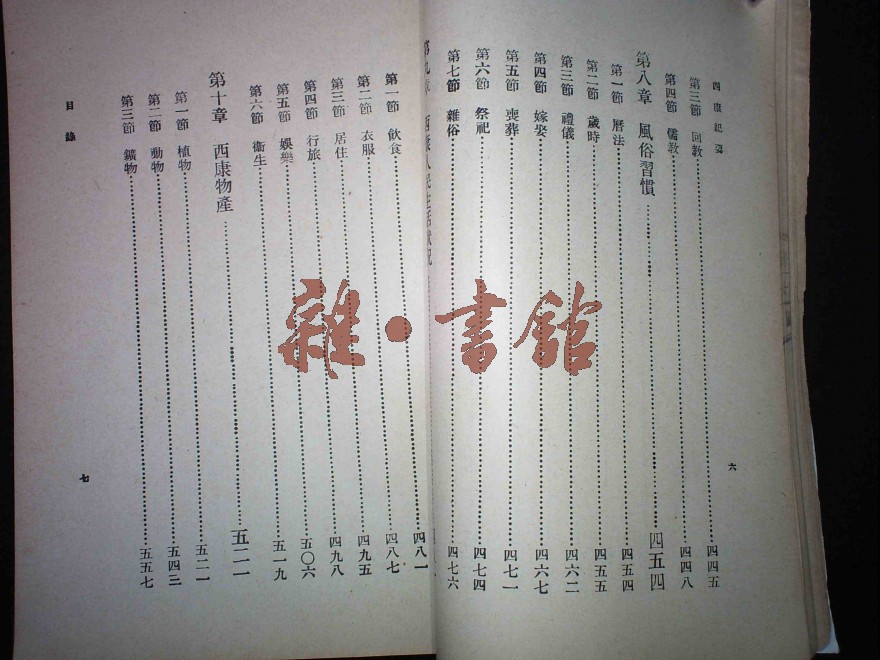 西康紀要
第三節 回教……四四五
第四節 儒教……四四八
第八章 風俗習慣……四五四
第一節 曆法……四五四
第二節 歲時……四五五
第三節 禮儀……四六二
第四節 嫁娶……四六七
第五節 喪葬……四七一
第六節 祭祀……四七四
第七節 雜俗……四七六
六
第九章 西康人民生活狀況
第一節 飲食……四八一
第二節 衣服……四八七
第三節 居住……四九五
第四節 行旅……四九八
第五節 娛樂……五〇六
第六節 衞生……五一九
第十章 西康物產……五二一
第一節 植物……五二一
第二節 動物……五四三
第三節 鑛物……五五七
目錄
七
雜·書館